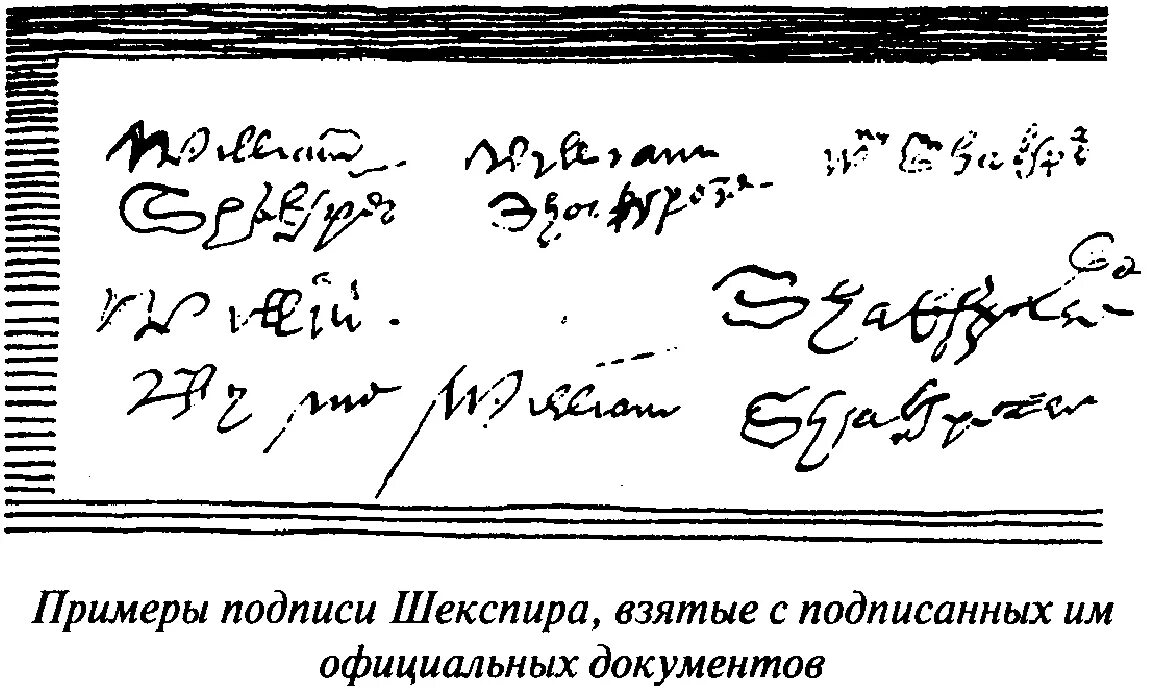 William William Wm Shakspe
Shaksper Shakspere
Willm Shakspere
By me William Shakspeare
Примеры подписи Шекспира, взятые с подписанных им
официальных документов